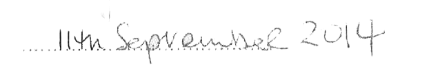 11th September 2014